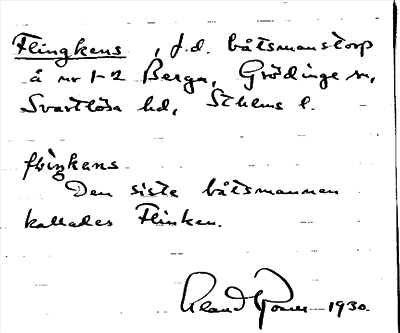 Flingkens, f.d. båtsmanstorp
å nr 1-2 Berga, Grödinge sn,
Svartlösa hd, Sthlms l.
fliŋkens
Den siste båtsmannen
kallades Flinken.
1930.